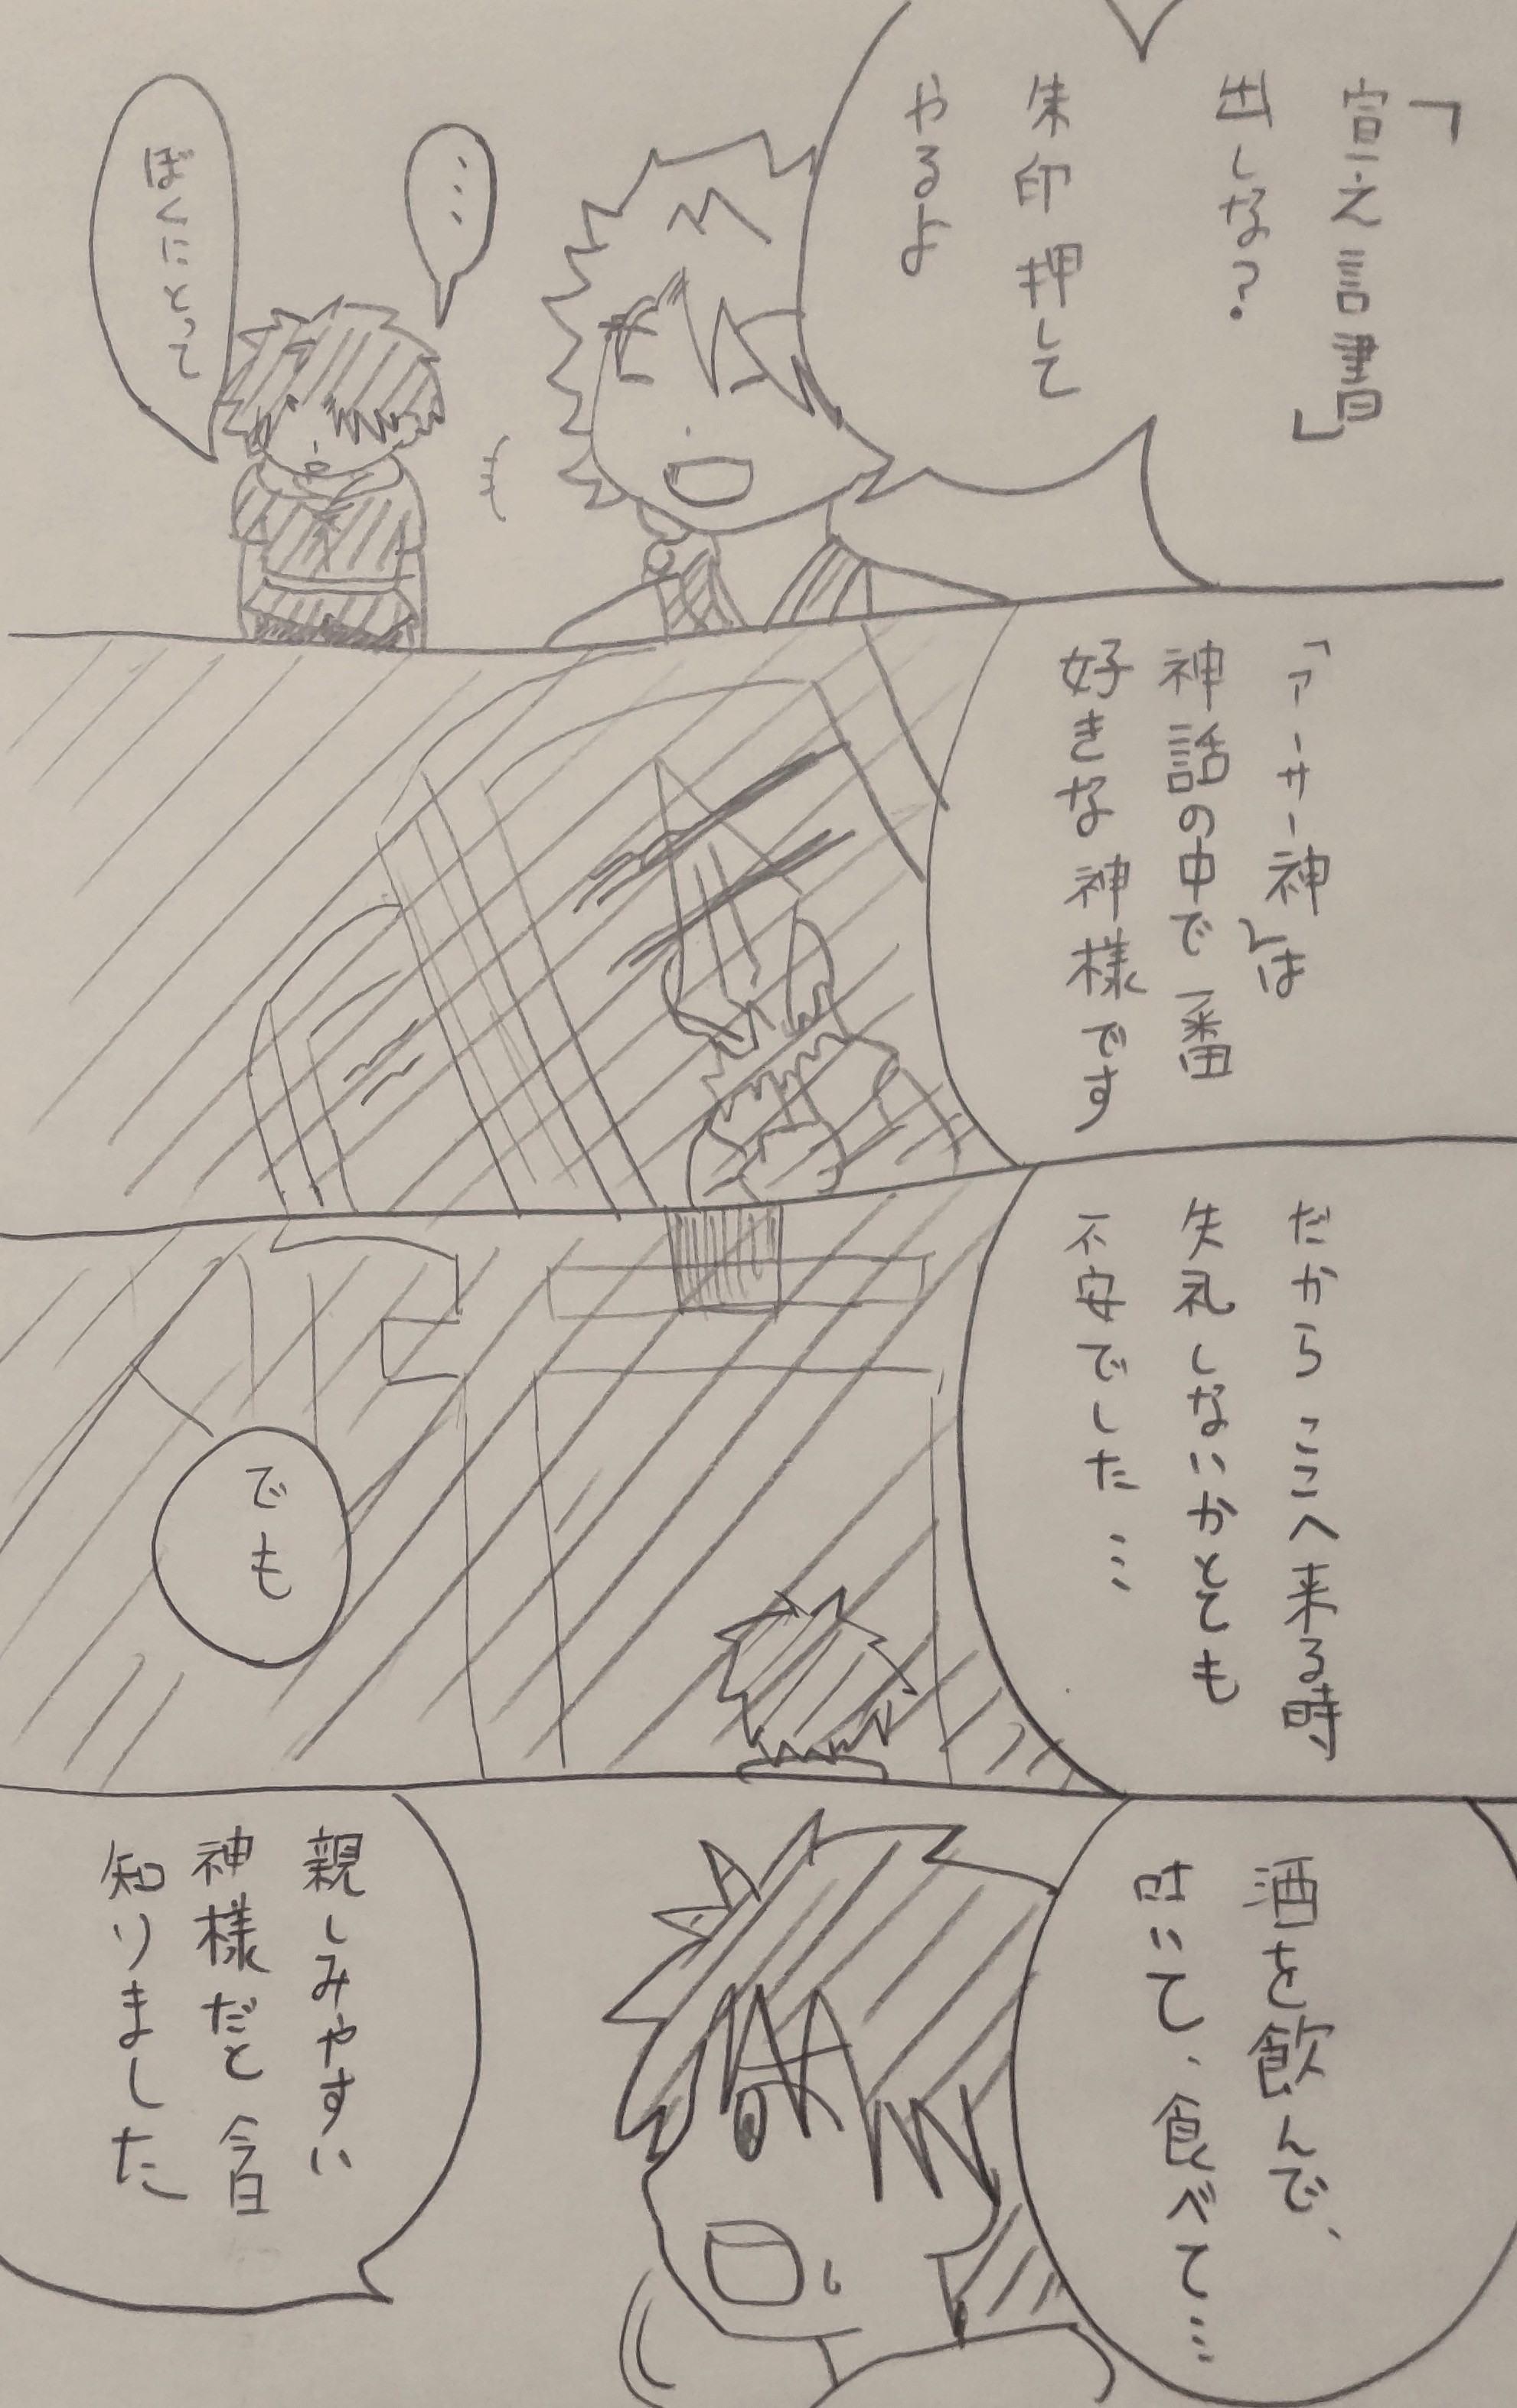 「宣え言書」
出しな？
朱印押して
やるよ
…
ぼくにとって
「アーサー神」は
神話の中で一番
好きな神様です
だからここへ来る時
失礼しないかとても
不安でした…
でも
酒を飲んで、
吐いて、食べて…
親しみやすい
神様だと今日
知りました